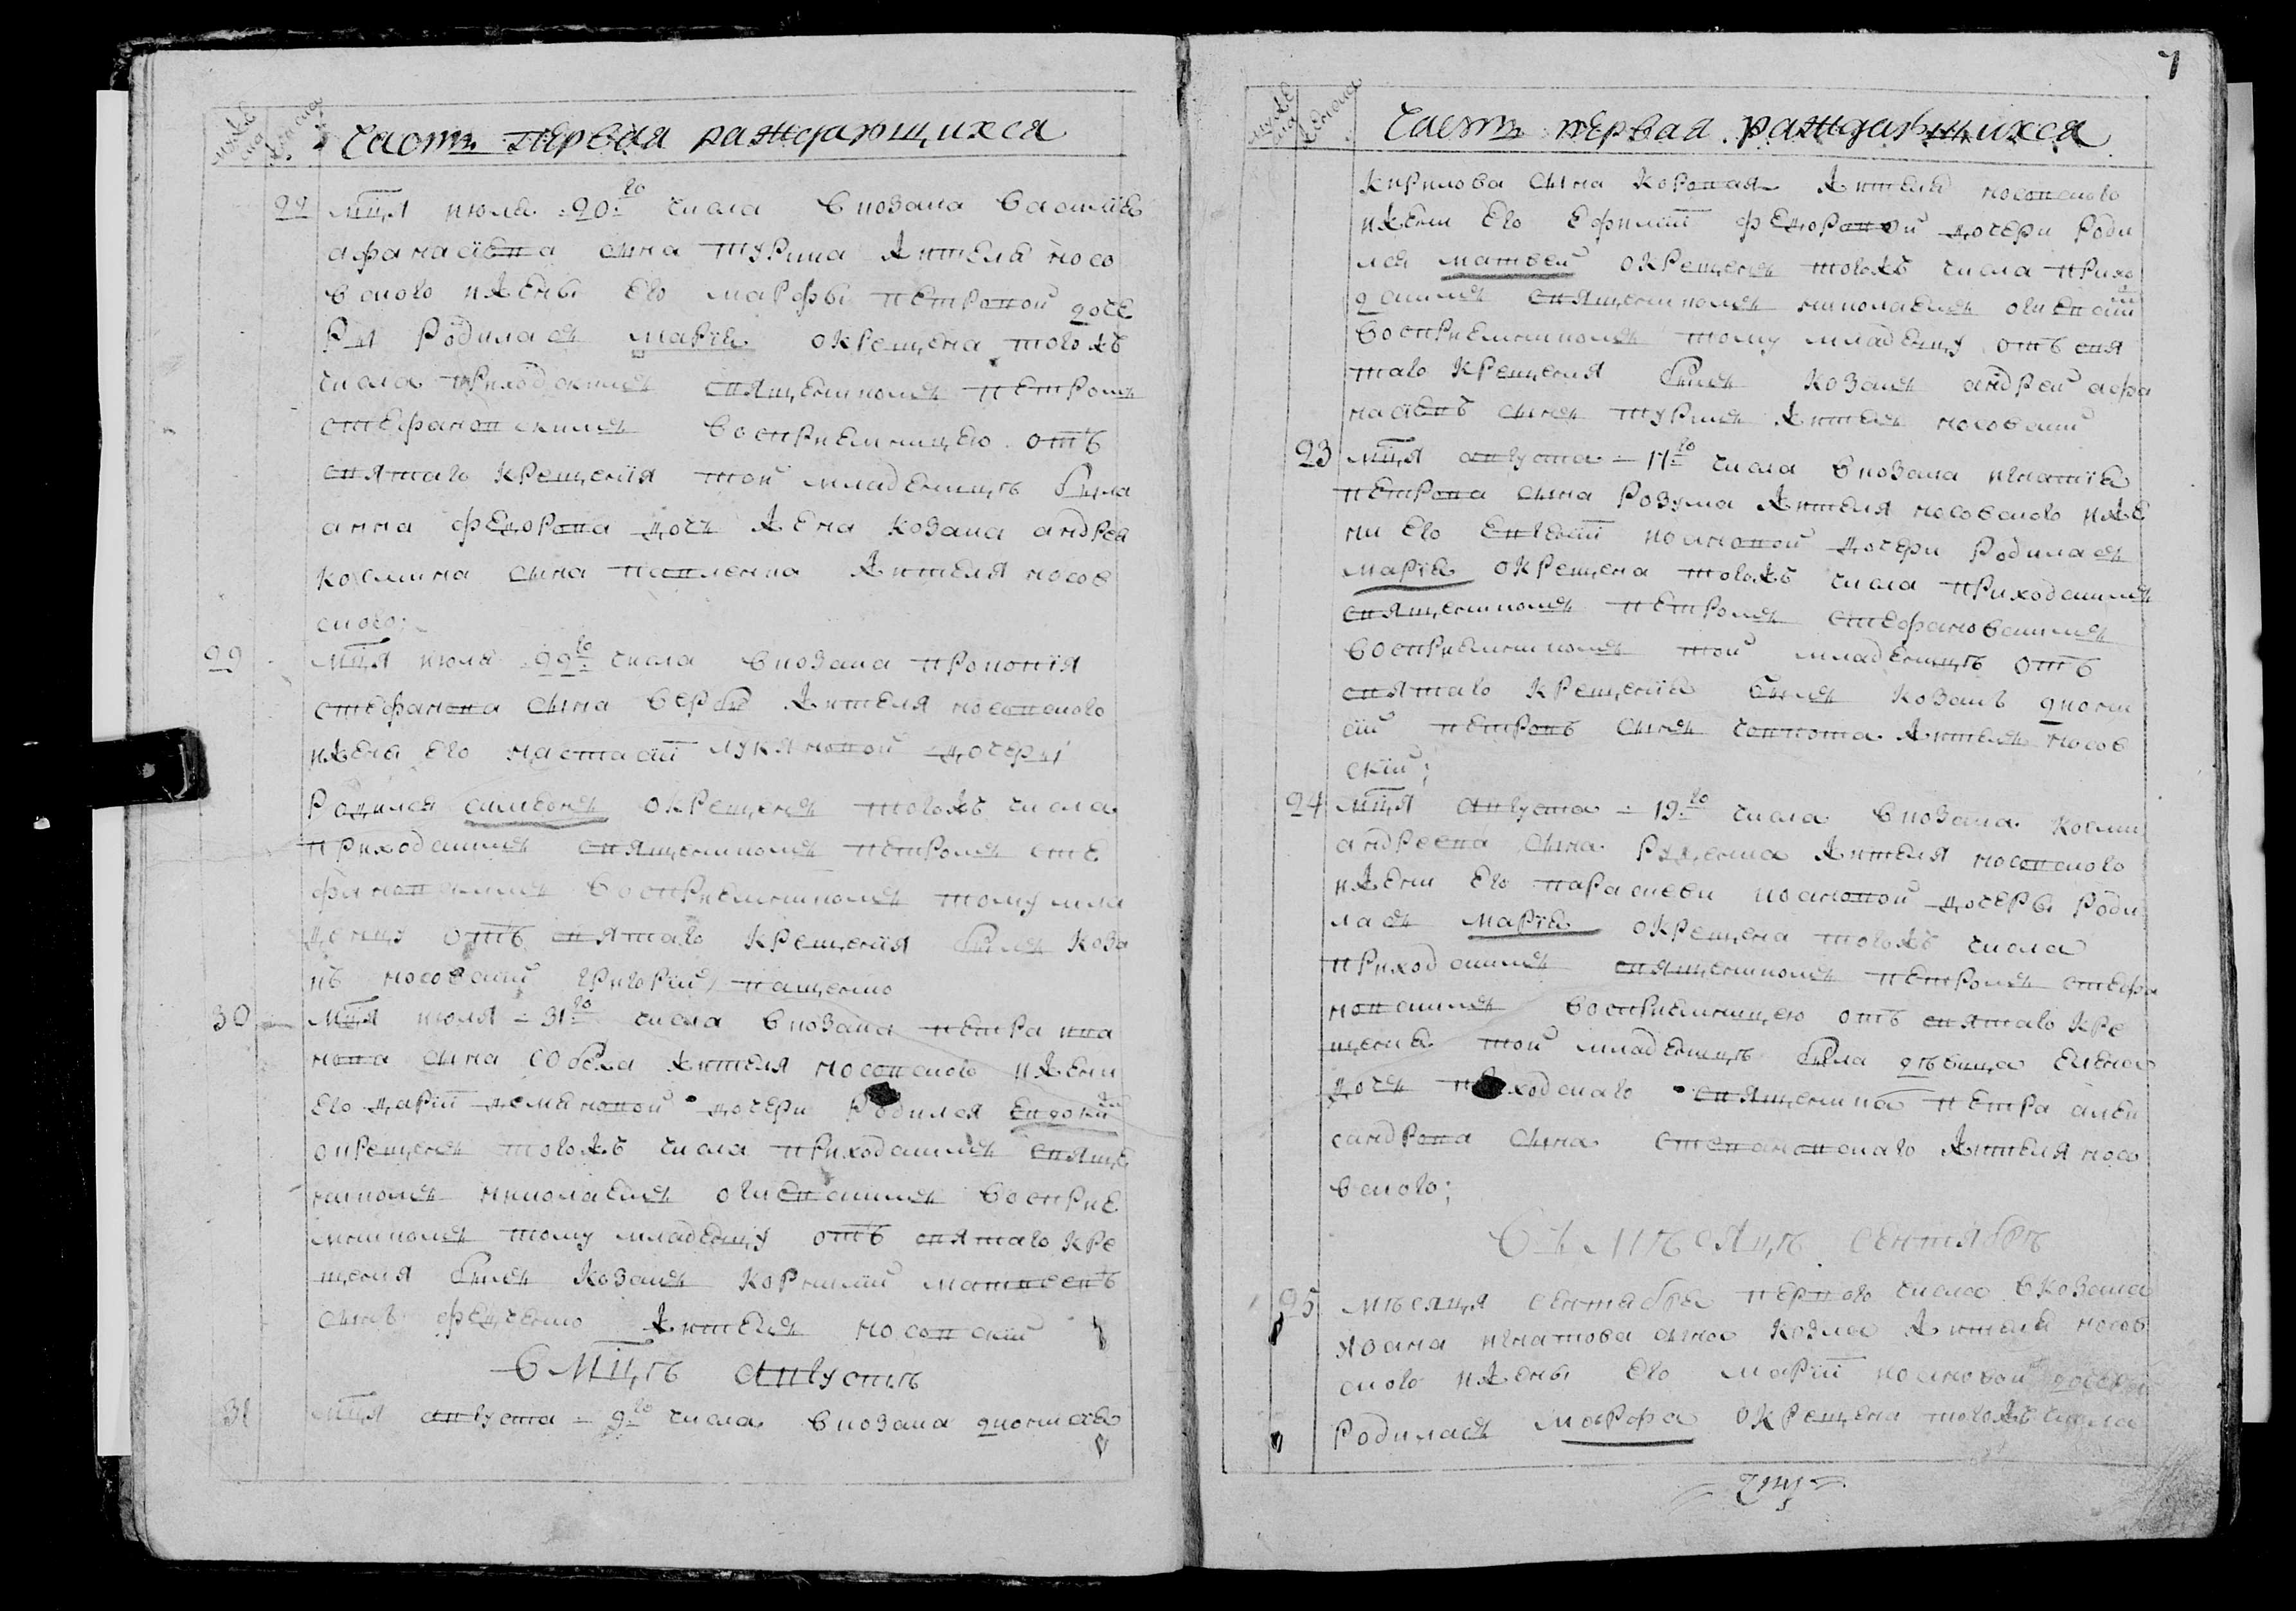 мужеска
женска
Часть первая раждающихся
22 мца июля 20го числа в козака василіѧ
афанасіева сина турика жителя носо
вского и жены его марфы петровой доче
ры родилась маріѧ окрещена тогожъ
числа приходскимъ священникомъ петромъ
стефановскимъ восприемницею отъ
святаго крещенія той младеницѣ была
анна федорова дочь жена козака андрея
космина сина павленка жителя носов
ского:
29 мца июля 29го числа в козака прокопія
стефанова сина вербы жителя носовского
и жены его настасіи лукяновой дочеры
родился симеонъ окрещенъ тогожъ числа
приходскимъ священникомъ петромъ сте
фановскимъ восприемникомъ тому мла
денцу отъ святаго крещенія былъ коза
къ носовскій григорій пащенко
30 мца июля 31го числа в козака петра ива
нова сина собка жителя носовского и жени
его даріи демяновой дочери родился евдоким
окрещенъ тогожъ числа приходскимъ свяще
никомъ николаемъ огиевскимъ восприе
мникомъ тому младенцу отъ святаго кре
щения былъ козакъ корнилій матвеевъ
синъ федченко житель носовскій
в мцѣ августѣ
31 мца августа 9го числа в козака диониѣѧ
7
мужеска
женска
Часть первая раждающихся
кирилова сина коропая жителя носовского
и жени его ефиміи федоровой дочери роди
лся матвей окрещенъ тогожъ числа прихо
дскимъ священникомъ николаемъ огиевски
восприемникомъ тому младенцу отъ свя
таго крещения былъ козакъ андрей афа
насіевъ синъ турикъ житель носовский
23 мца августа 17го числа в козака игнатіѧ
петрова сина розума жителя носовского и же
ни его евгеніи иоановой дочери родилась
маріѧ окрещена тогожъ числа приходскимъ
священникомъ петромъ стефановскимъ
восприемникомъ той младеницѣ отъ
святаго крещеніѧ былъ козакъ диони
сій петровъ синъ житель носов
скій;
24 мца августа 19го числа в козака косми
андреева сина руденка жителя носовского
и жени его параскеви иоановой дочеры роди
лась маріѧ окрещена тогожъ числа
приходскимъ священникомъ петромъ стефа
новскимъ восприемницею отъ святаго кре
щения той младеницѣ была дѣвица елена
дочь приходскаго священника петра алек
сандрова сина стефановскаго жителя носо
вского;
Въ мѣсяцѣ сентябрѣ
25 мѣсяця сентября первого числа в козака
иоана игнатова сина козла жителя носов
ского и жены его маріи иоановой дочери
родилась марфа окрещена тогожъ числа